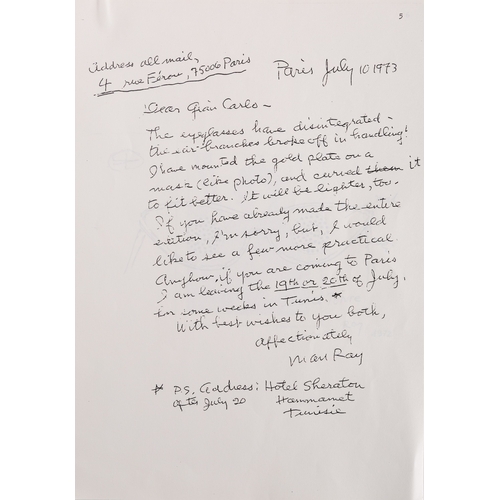 5
Address all mail,
4 rue Férou, 75006 Paris
Paris July 10 1973
Dear Gian Carlo -
The eyeglasses have disintegrated -
the ear-branches broke off in handling!
I have mounted the gold plate on a
mask (like photo), and curved them it
to fit better. It will be lighter, too.
If you have already made the entire
edition, I'm sorry, but, I would
like to see a few more practical.
Anyhow, if you are coming to Paris
I am leaving the 19th or 20th of July,
for some weeks in Tunis. *
With best wishes to you both,
affectionately
Man Ray
* PS. Address: Hotel Sheraton
after July 20 Hammamet
Tunisie